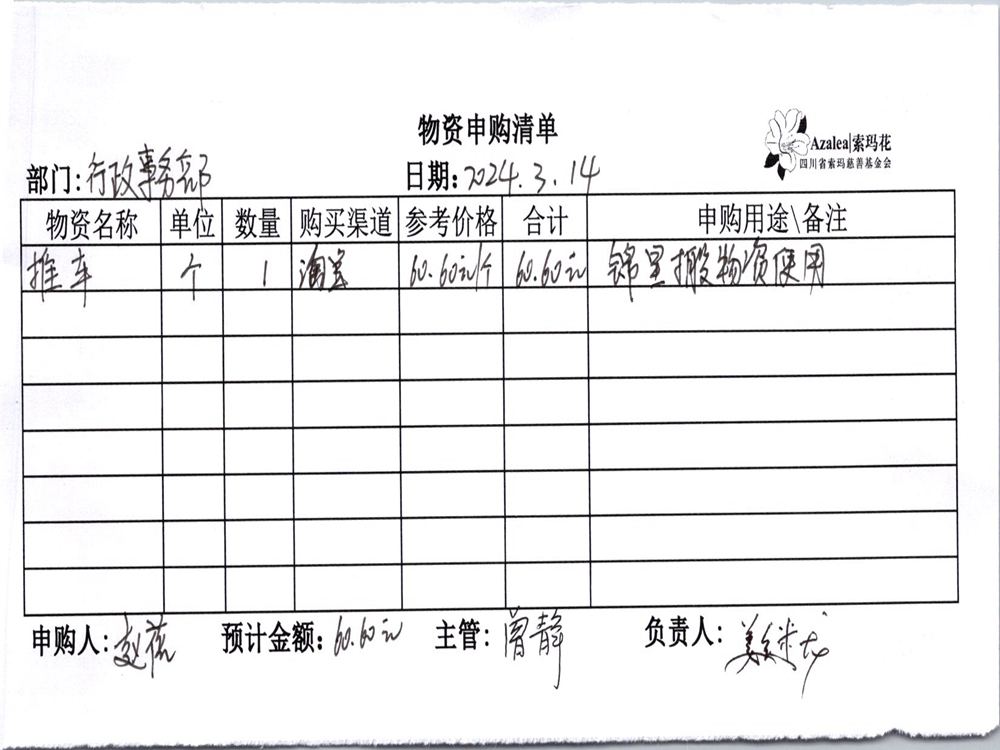 物资申购清单
Azalea|索玛花
四川省索玛慈善基金会
部门:行政事务部 日期:2024.3.14
物资名称 单位 数量 购买渠道 参考价格 合计 申购用途\备注
推车 个 1 淘宝 60.60元/个 60.60元 锦里搬物资使用
申购人:赵 预计金额:60.60元 主管:曾静 负责人: